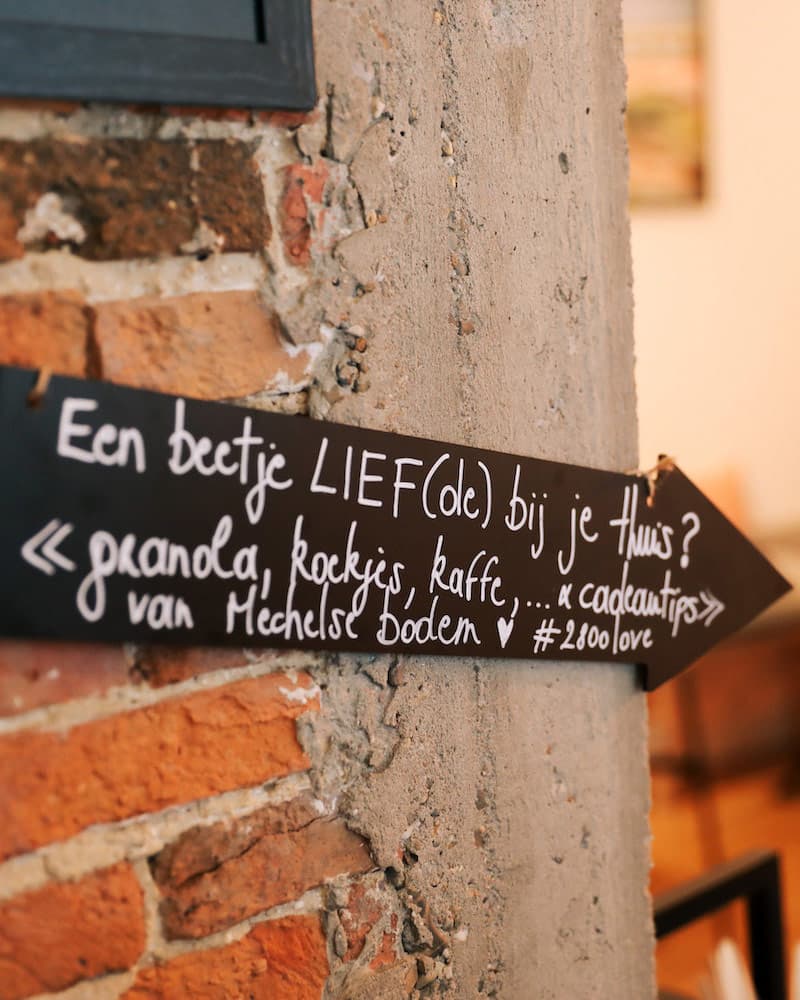 Een beetje LIEF(de) bij je thuis?
« granola, koekjes, kaffe, ... & cadeautips »
van Mechelse bodem ♥ #2800love